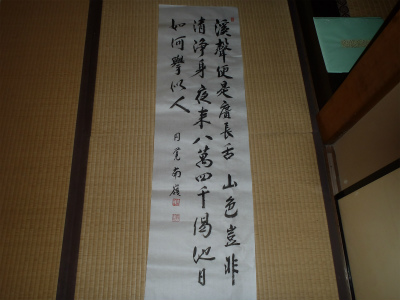 溪聲便是廣長舌 山色豈非
清浄身夜来八萬四千偈他日
如何擧似人
円覚南嶺